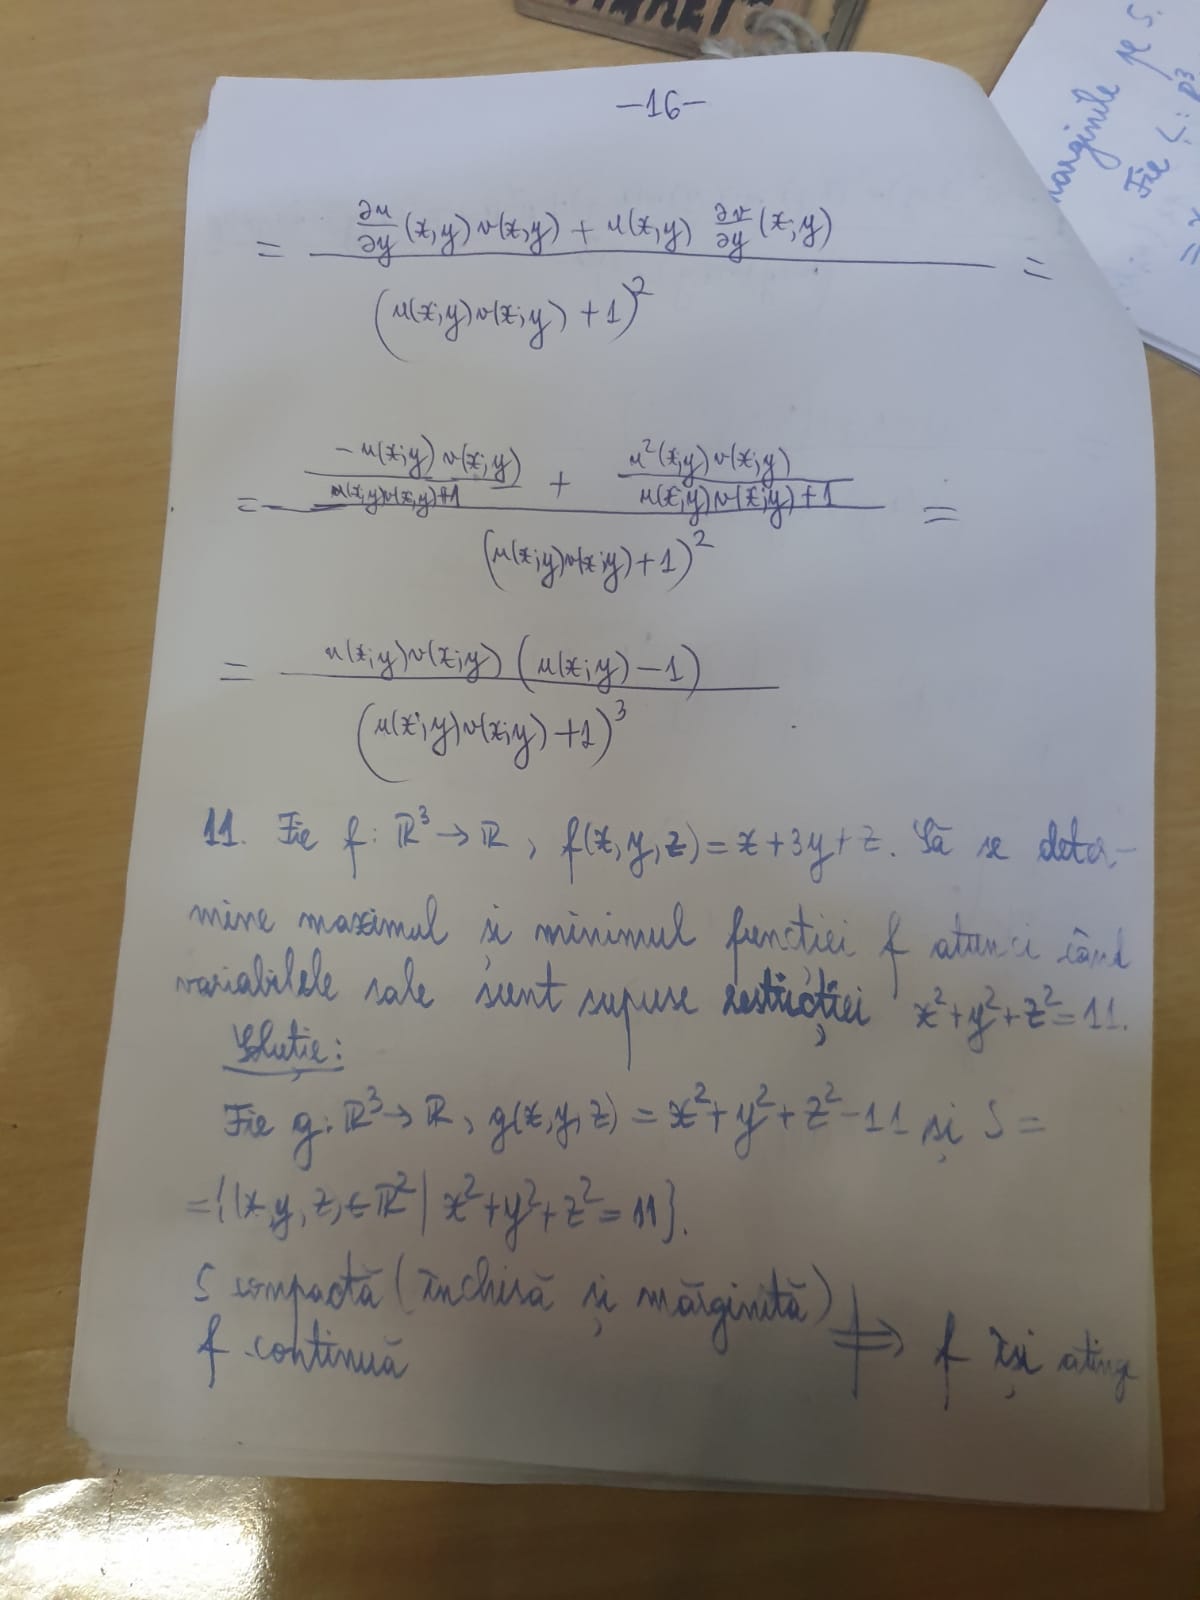 -16-
= (∂u/∂y (x,y) v(x,y) + u(x,y) ∂v/∂y (x,y)) / (u(x,y)v(x,y)+1)² =
= (-u(x,y)v(x,y) / (u(x,y)v(x,y)+1) + u²(x,y)v(x,y) / (u(x,y)v(x,y)+1)) / (u(x,y)v(x,y)+1)² =
= u(x,y)v(x,y)(u(x,y)-1) / (u(x,y)v(x,y)+1)³
11. Fie f: ℝ³→ℝ, f(x,y,z)=x+3y+z. Să se deter-
mine maximul și minimul funcției f atunci când
variabilele sale sunt supuse restricției x²+y²+z²=11.
Soluție:
Fie g: ℝ³→ℝ, g(x,y,z)=x²+y²+z²-11 și S=
={(x,y,z)∈ℝ²| x²+y²+z²=11}.
S compactă (închisă și mărginită)
f continuă ⟹ f își atinge
marginile pe S.
Fie L: ℝ³
=